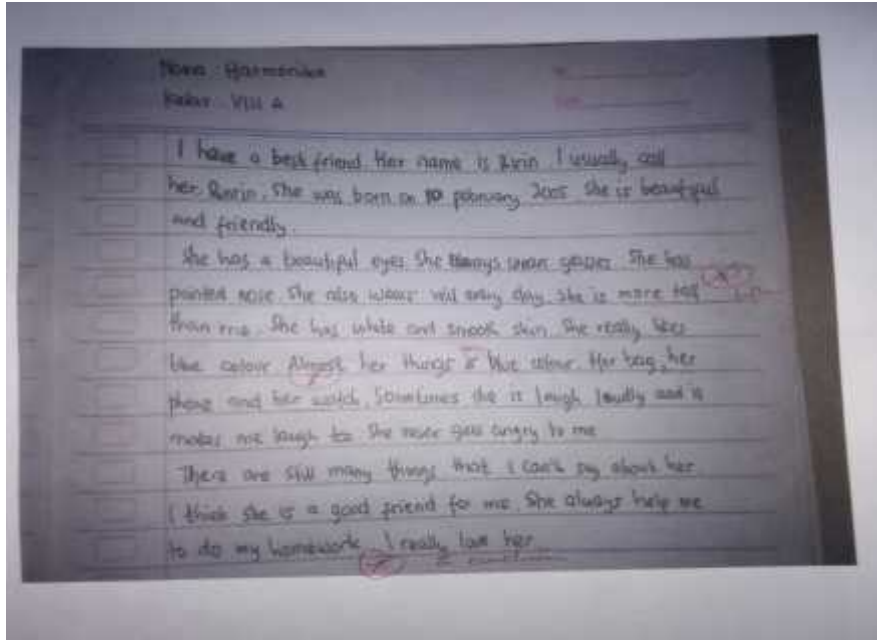 Nama : Harmonika
Kelas : VIII A
I have a best friend. Her name is Ririn. I usually call
her Ririn. She was born on 10 february 2005. She is beautiful
and friendly.
She has a beautiful eyes. She always wear glasses. She has
pointed nose. She also wear veil every day. She is more tall
than me. She has white and smooth skin. She really likes
blue colour. Almost her things is blue colour. Her bag, her
phone and her watch. Sometimes she is laugh loudly and is
makes me laugh too. She never gets angry to me
There are still many things that I can't say about her.
I think she is a good friend for me. She always help me
to do my homework. I really love her.